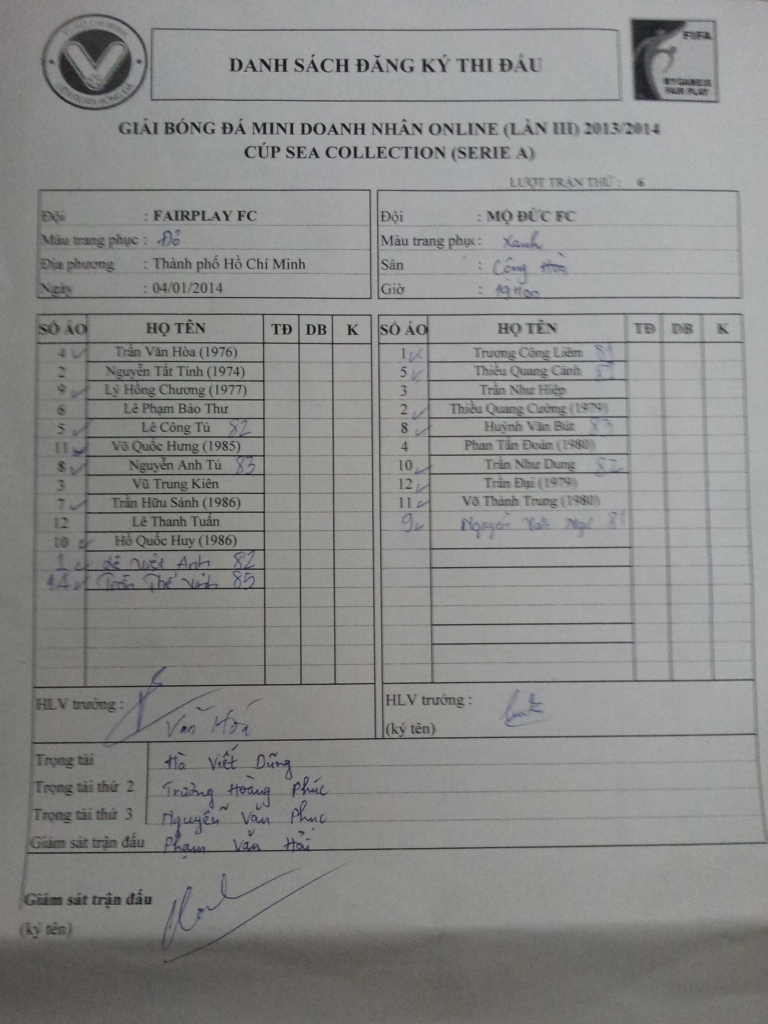 DANH SÁCH ĐĂNG KÝ THI ĐẤU
FIFA
MY GAME IS
FAIR PLAY
GIẢI BÓNG ĐÁ MINI DOANH NHÂN ONLINE (LẦN III) 2013/2014
CÚP SEA COLLECTION (SERIE A)
LƯỢT TRẬN THỨ : 6
Đội : FAIRPLAY FC
Màu trang phục : Đỏ
Địa phương : Thành phố Hồ Chí Minh
Ngày : 04/01/2014
Đội : MỘ ĐỨC FC
Màu trang phục : Xanh
Sân : Cộng Hòa
Giờ : 19H00
SỐ ÁO HỌ TÊN TĐ DB K
4 Trần Văn Hòa (1976)
2 Nguyễn Tất Tính (1974)
9 Lý Hồng Chương (1977)
6 Lê Phạm Bảo Thư
5 Lê Công Tú 82
11 Võ Quốc Hưng (1985)
8 Nguyễn Anh Tú 83
3 Vũ Trung Kiên
7 Trần Hữu Sánh (1986)
12 Lê Thanh Tuấn
10 Hồ Quốc Huy (1986)
1 Lê Việt Anh 82
14 Trần Thế Vinh 85
SỐ ÁO HỌ TÊN TĐ DB K
1 Trương Công Liêm
5 Thiều Quang Cảnh
3 Trần Như Hiệp
2 Thiều Quang Cường (1979)
8 Huỳnh Văn Bút 83
4 Phan Tấn Đoàn (1980)
10 Trần Như Dung 82
12 Trần Đại (1979)
11 Võ Thành Trung (1980)
9 Nguyễn Văn
HLV trưởng :
Văn Hóa
HLV trưởng :
(ký tên)
Trọng tài Hà Viết Dũng
Trọng tài thứ 2 Trương Hoàng Phúc
Trọng tài thứ 3 Nguyễn Văn Phúc
Giám sát trận đấu Phạm Văn Hải
Giám sát trận đấu
(ký tên)